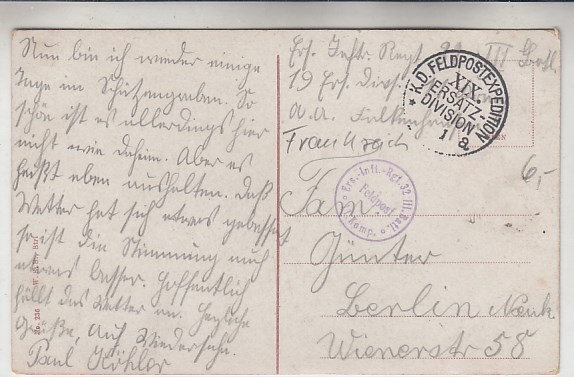 Nun bin ich wieder einige
Tage im Schützengraben. So
schön ist es allerdings hier
nicht wie daheim. Aber es
heißt eben aushalten. Daß
Wetter hat sich etwas gebessert
so ist die Stimmung auch
etwas besser. Hoffentlich
hält das Wetter an. Herzliche
Grüße, auf Wiedersehn.
Paul Köhler
Ers. Inftr. Regt. III
19 Ers. Div.
A.A. Falkenhausen
Frankreich
K.D. FELDPOSTEXPEDITION
XIX.
ERSATZ-
DIVISION
a
Ers.-Inft.-Rgt. 32 III. Batl.
Feldpost
Komp.
6,-
Fam.
Günter
Berlin Neuk.
Wienerstr 58
No. 236